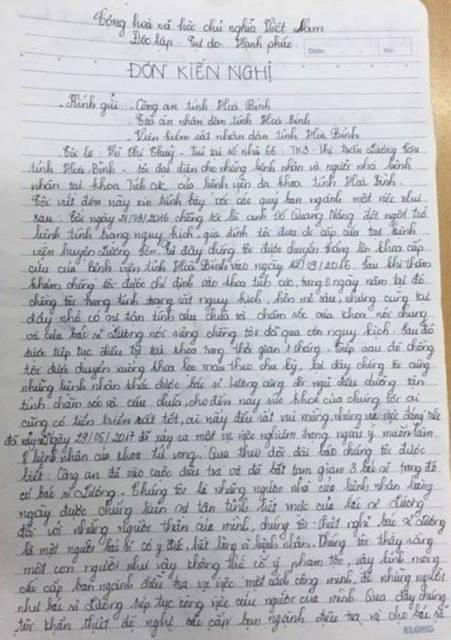 Cộng hoà xã hội chủ nghĩa Việt Nam
Độc lập - Tự do - Hạnh phúc
ĐƠN KIẾN NGHỊ
Kính gửi: - Công an tỉnh Hoà Bình
- Toà án nhân dân tỉnh Hoà Bình
- Viện kiểm sát nhân dân tỉnh Hoà Bình
Tôi là: Thị Thuỷ - Trú tại số nhà 66 - TK3 - Thị trấn Lương Sơn
tỉnh Hoà Bình - tôi đại diện cho những bệnh nhân và người nhà bệnh
nhân tại khoa Tích cực của bệnh viện đa khoa tỉnh Hoà Bình.
Tôi viết đơn này xin trình bày với các quý ban ngành một việc như
sau: Vào ngày /09/2016 chồng tôi là anh Đỗ Quang Năng đột ngột trở
bệnh tình trạng nguy kịch, gia đình tôi đưa đi cấp cứu tại bệnh
viện huyện Lương Sơn. Từ đây chồng tôi được chuyển thẳng lên khoa cấp
cứu của Bệnh viện tỉnh Hoà Bình vào ngày /09/2016. Sau khi thăm
khám chồng tôi được chỉ định vào khoa tích cực, trong 5 ngày nằm tại đó
chồng tôi trong tình trạng rất nguy kịch, hôn mê sâu, nhưng cũng tại
đây nhờ có sự tận tình cứu chữa và chăm sóc của khoa nói chung
và của bác sĩ Lương nói riêng chồng tôi đã qua cơn nguy kịch. Sau đó
được tiếp tục điều trị tại khoa trong thời gian 1 tháng. Tiếp sau đó chồng
tôi được chuyển xuống khoa lọc máu theo chu kỳ, tại đây chồng tôi cùng
những bệnh nhân khác được bác sĩ Lương cùng đội ngũ điều dưỡng tận
tình chăm sóc và cứu chữa, cho đến nay sức khoẻ của chúng tôi ai
cũng có tiến triển rất tốt, ai nấy đều rất vui mừng, nhưng
Ngày 29/05/2017 đã xảy ra một vụ việc nghiêm trọng ngoài ý muốn làm
8 bệnh nhân của khoa tử vong. Qua theo dõi đài báo chúng tôi được
biết: Công an đã vào cuộc điều tra và đã bắt tạm giam 3 bác sĩ trong đó
có bác sĩ Lương. Chúng tôi là những người nhà của bệnh nhân hàng
ngày được chứng kiến sự tận tình hết mức của bác sĩ Lương
đối với những người thân của mình, chúng tôi thiết nghĩ bác sĩ Lương
là một người bác sĩ có y đức, hết lòng vì bệnh nhân. Chúng tôi thấy rằng
một con người như vậy không thể có ý phạm tội, vậy kính mong
các cấp ban ngành điều tra vụ việc một cách công minh, để những người
như bác sĩ Lương tiếp tục công việc cứu người của mình. Qua đây chúng
tôi khẩn thiết đề nghị các cấp ban ngành điều tra và cho bác sĩ
KLONG